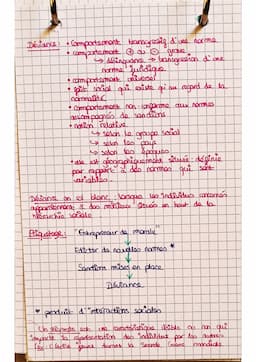 Déviance : • Comportement transgressif d'une norme
• comportement ⊕ ou ⊖ grave
↳ délinquance → transgression d'une
norme juridique
• comportement universel
• fait social qui existe qu'au regard de la
normalité
• comportement non conforme aux normes
accompagnées de sanctions
• notion relative
↳ selon le groupe social
↳ selon les pays
↳ selon les époques
• elle est géographiquement située : définie
par rapport à des normes qui sont
variables.
Déviance en col blanc : lorsque les individus concernés
appartiennent à des milieux situés en haut de la
hiérarchie sociale
Etiquetage : "Entrepreneur de morale"
↓
Editer de nouvelles normes *
↓
Sanctions mises en place
↓
Déviance
* produit d'interactions sociales
Un stigmate est une caractéristique visible ou non qui
la représentation des individus par les autres
Ex : L'étoile jaune durant la Seconde Guerre mondiale